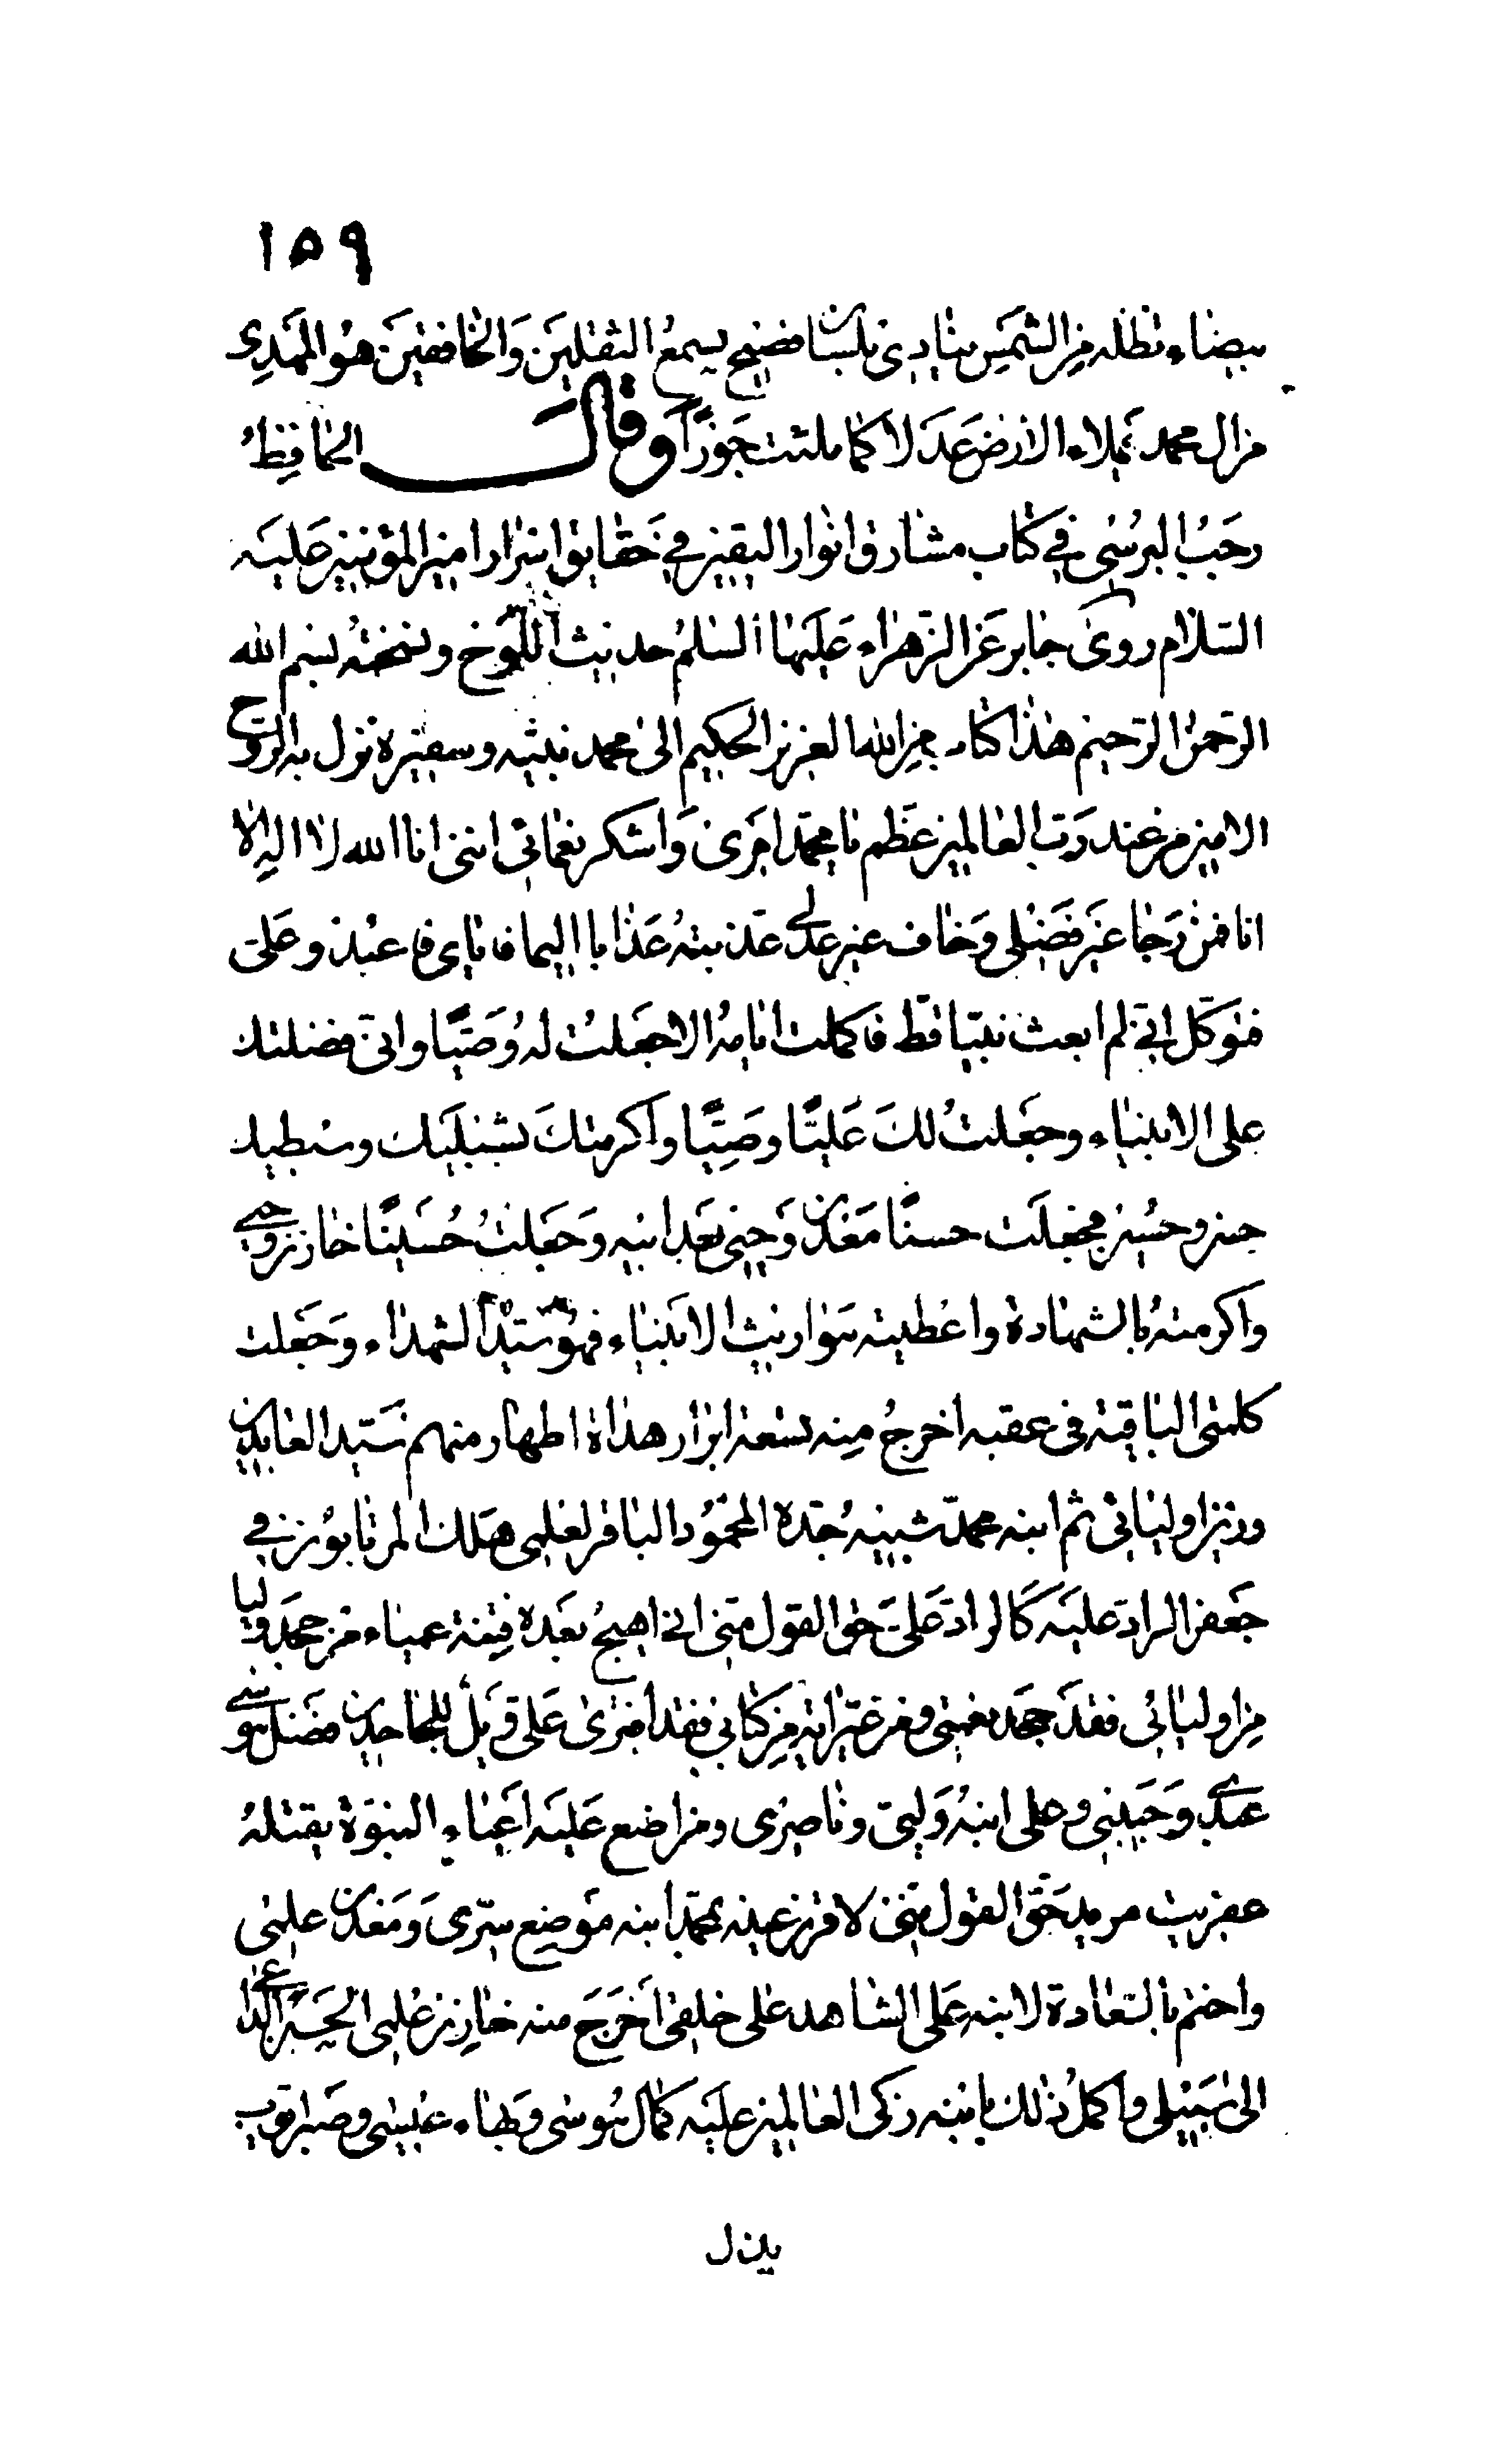 ١٥٩
بيضاء تظله من الشمس ينادي بلسان فصيح يسمع الثقلين والخافقين هو المهدي
من ال محمد يملاء الارض عدلا كما ملئت جورا وقال الحافظ
رجب البرسي في كتاب مشارق انوار اليقين في حقايق اسرار امير المؤمنين عليه
السلام روى جابر عن الزهراء عليها السلم حديث اللوح ونسخته بسم الله
الرحمن الرحيم هذا كتاب من الله العزيز الحكيم الى محمد نبيه وسفيره نزل به الروح
الامين من عند رب العالمين عظم يا محمد امرى واشكر نعمائي انني انا الله لا اله الا
انا فمن رجا غير فضلي وخاف غير عدلي عذبته عذابا اليما فاياي فاعبد وعلى
فتوكل اني لم ابعث نبيا قط فاكملت ايامه الا جعلت له وصيا واني فضلتك
على الانبياء وجعلت لك عليا وصيا واكرمتك بشبليك وسبطيك
حسن وحسين فجعلت حسنا معدن وحيي بعد ابيه وجعلت حسينا خازن وحيي
واكرمته بالشهادة واعطيته مواريث الانبياء فهو سيد الشهداء وجعلت
كلمتي الباقية في عقبه اخرج منه تسعة ابرار هداة اطهار منهم سيد العابدين
وزين اوليائي ثم ابنه محمد شبيه جده المحمود الباقر لعلمي هلك المرتابون في
جعفر الراد عليه كالراد علي حق القول مني اني اهيج بعده فتنة عمياء من جحد وليا
من اوليائي فقد جحد نعمتي ومن غير اية من كتابي فقد افترى علي ويل للجاحدين فضل موسى
عبدي وحبيبي وعلى ابنه وليي وناصري ومن اضع عليه اعباء النبوة يقتله
عفريت مريد حق القول مني لاقرن عينه بمحمد ابنه موضع سري ومعدن علمي
واختم بالسعادة لابنه علي الشاهد على خلقي اخرج منه خازن علمي الحسن الداعي
الى سبيلي واكمل ذلك بابنه زكى العالمين عليه كمال موسى وبهاء عيسى وصبر ايوب
يذل